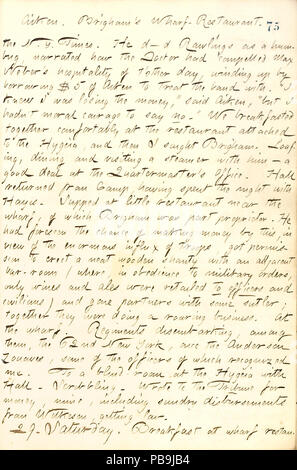 Aitken. Brigham's Wharf-Restaurant. 75
the N. Y. Times. He d—d Rawlings as a hum-
bug, narrated how the Doctor had compelled Max
Weber's hospitality of t'other day, winding up by
borrowing $5 of Aitken to treat the band with. "I
knew I was losing the money," said Aitken, "but I
hadn't moral courage to say no." We breakfasted
together comfortably at the restaurant attached
to the Hygeia, and then I sought Brigham. Loaf-
ing, dining and visiting a steamer with him — a
good deal at the Quartermaster's Office. Hall
returned from Camp, having spent the night with
Hayes. Supped at little restaurant near the
wharf, of which Brigham was part proprietor. He
had foreseen the chance of making money by this, in
view of the enormous influx of troops, got permis-
sion to erect a neat wooden shanty with an adjacent
bar-room (where, in obedience to military orders,
only wines and ales were retailed to officers and
civilians) and gone partners with some sutler;
together they were doing a roaring business. At
the wharf. Regiments disembarking, among
them, the 62nd New York, once the Anderson
Zouaves, some of the officers of which recognized
me. To a blind room at the Hygeia with
Hall. Scribbling. Wrote to the Tribune for
money, mine, including sundry disbursements
from Wilkeson, getting low.
29. Saturday. Breakfast at wharf restau-
alamy
PB9JB4